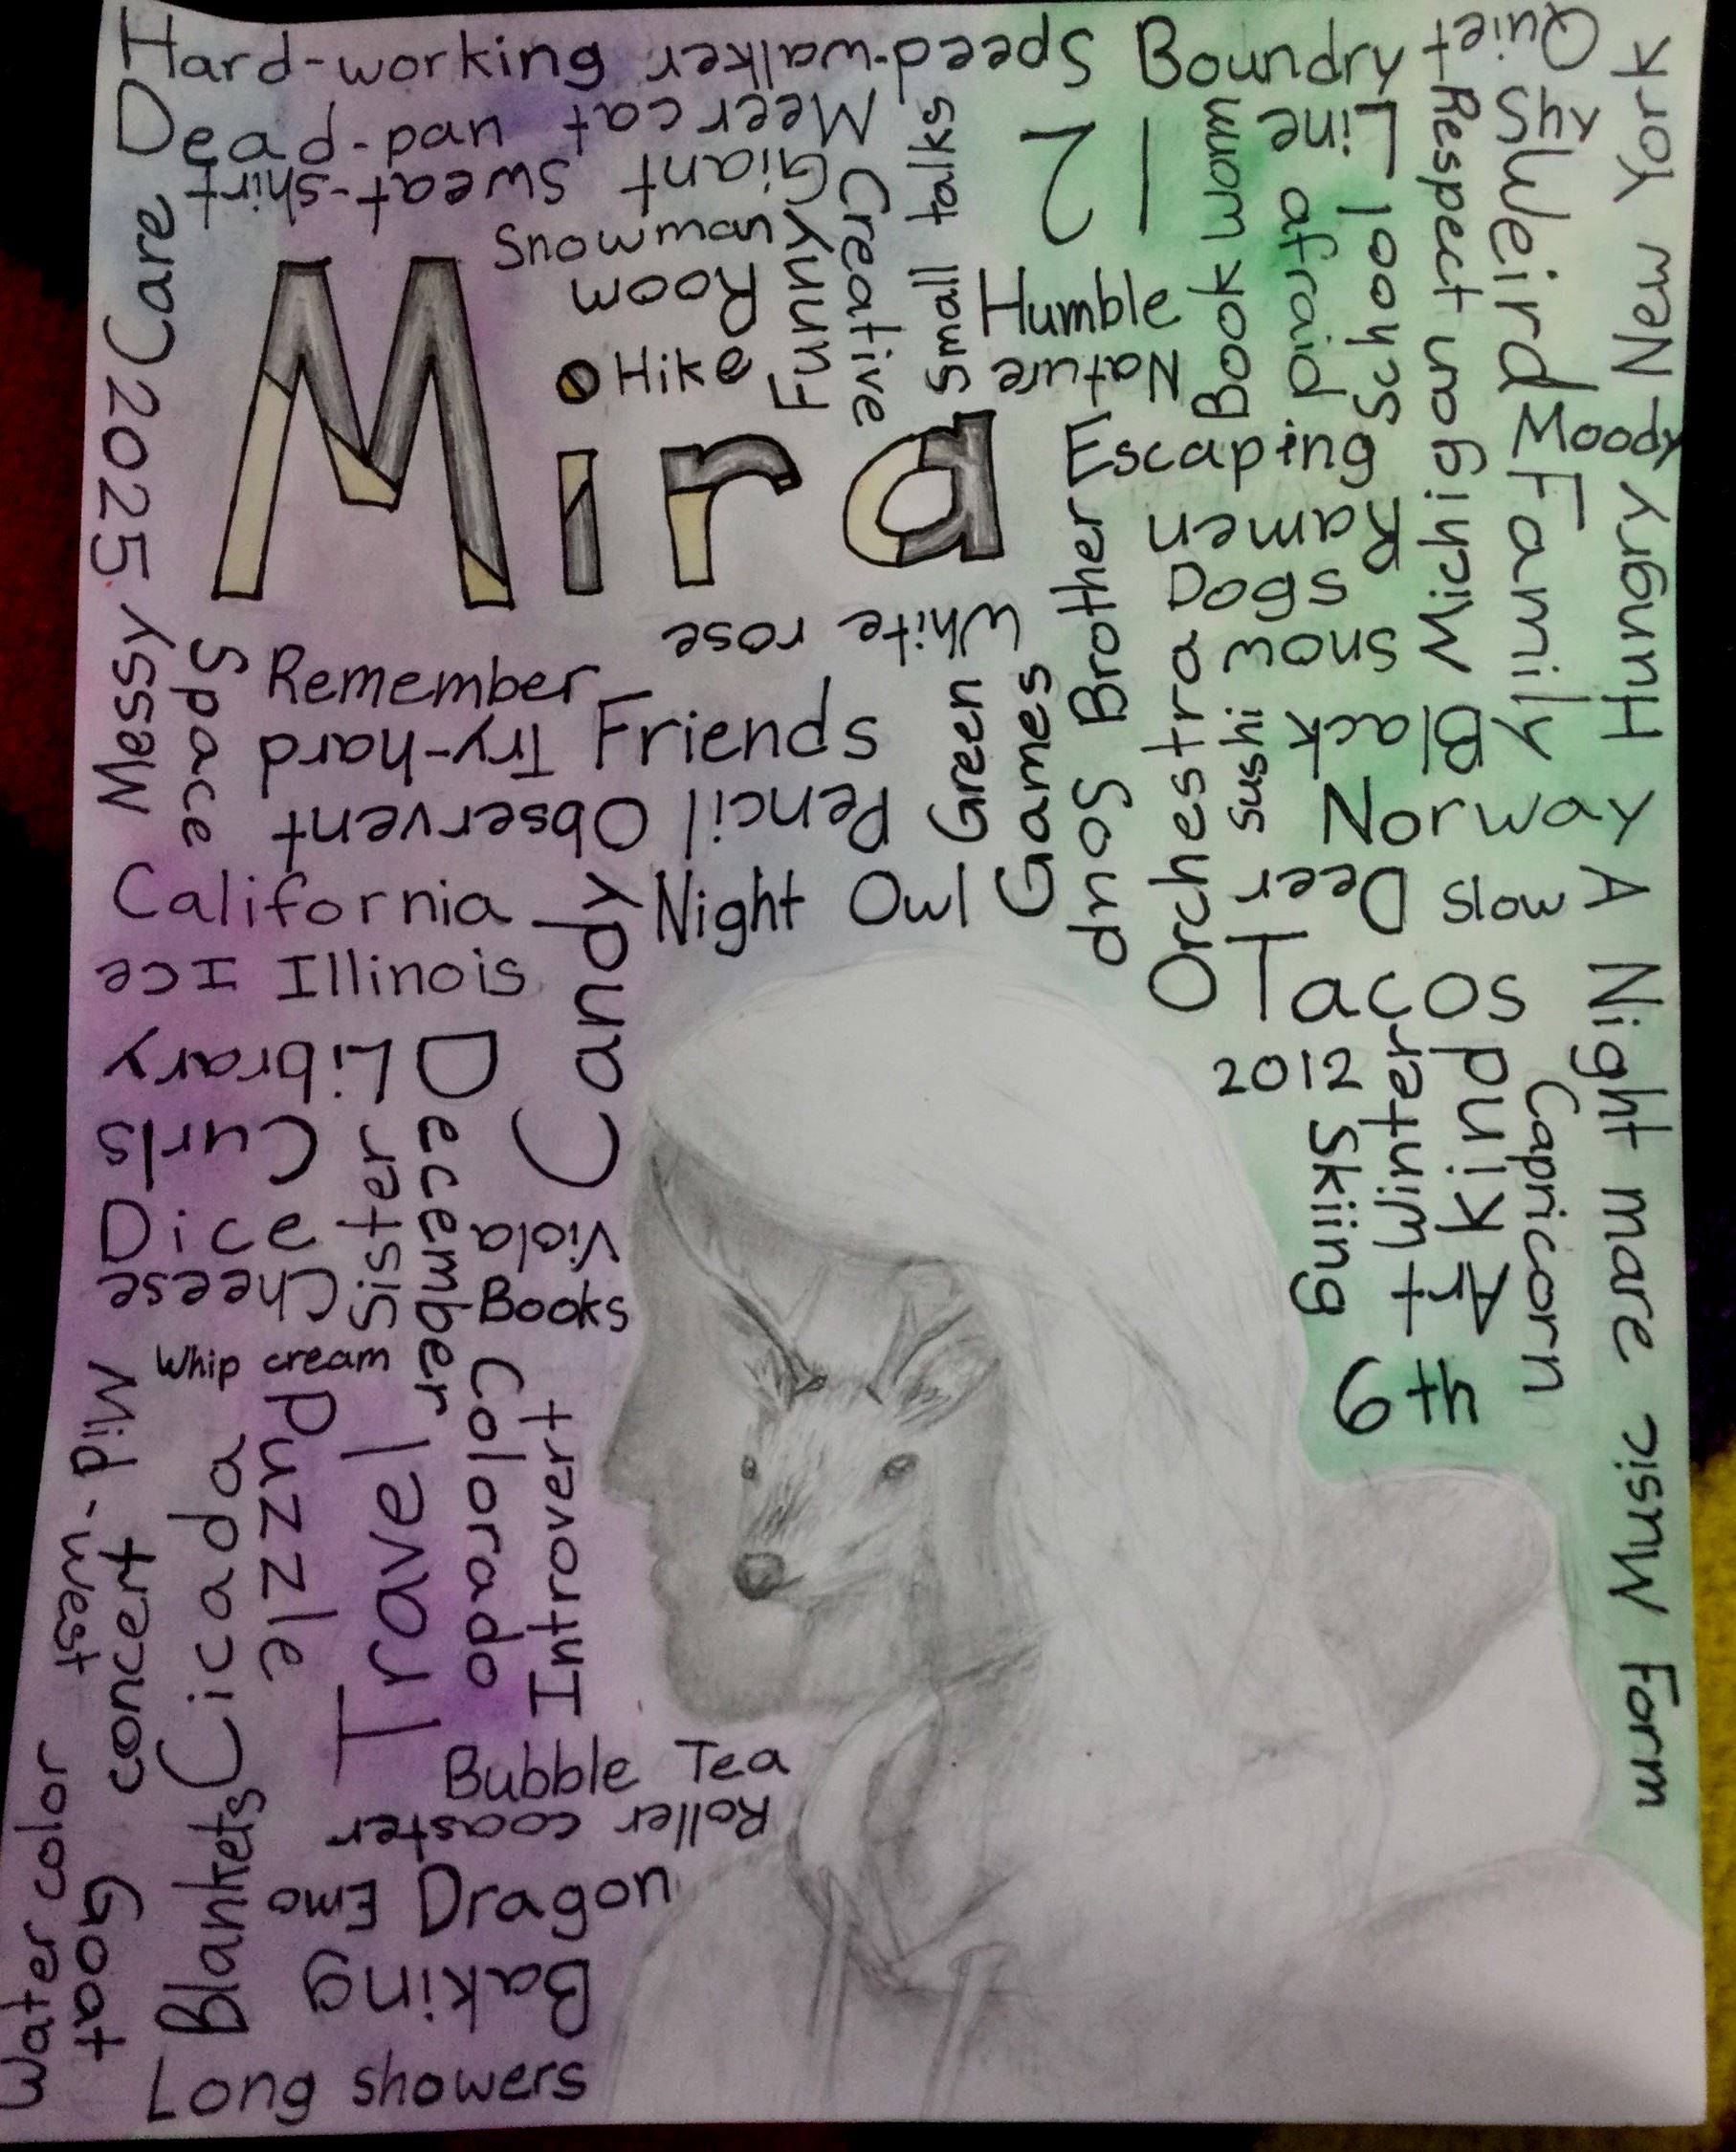 Hard-working
Speed-walker
Boundry
Quiet
Dead-pan
Meer cat
Giant sweat-shirt
Small talks
12
Book worm
Line
Paid afa
School
Respect
Shy
New York
Care
Snowman
Funny
Creative
Room
Humble
Nature
Weird
Hike
Mira
2025
Escaping
Moody
Ramen
Michigan
Family
Hungry
Brother
Dogs
White rose
Snow
Messy
Space
Remember
Try-hard
Friends
Green
Games
Soup
Orchestra
sushi
Black
Norway
Observent
Pencil
California
Candy
Night Owl
Deer
Slow
A Night mare Form
Ice
Illinois
Tacos
Library
December
2012
Winter
Kind
Capricorn
Curls
Sister
Skiing
Art
Dice
Viola
Cheese
Books
Whip cream
6th
Music
Mid-west
concert
Cicada
Puzzle
Travel
Colorado
Introvert
Bubble Tea
Roller coaster
Water color
Goat
Blankets
Emo
Dragon
Baking
Long showers